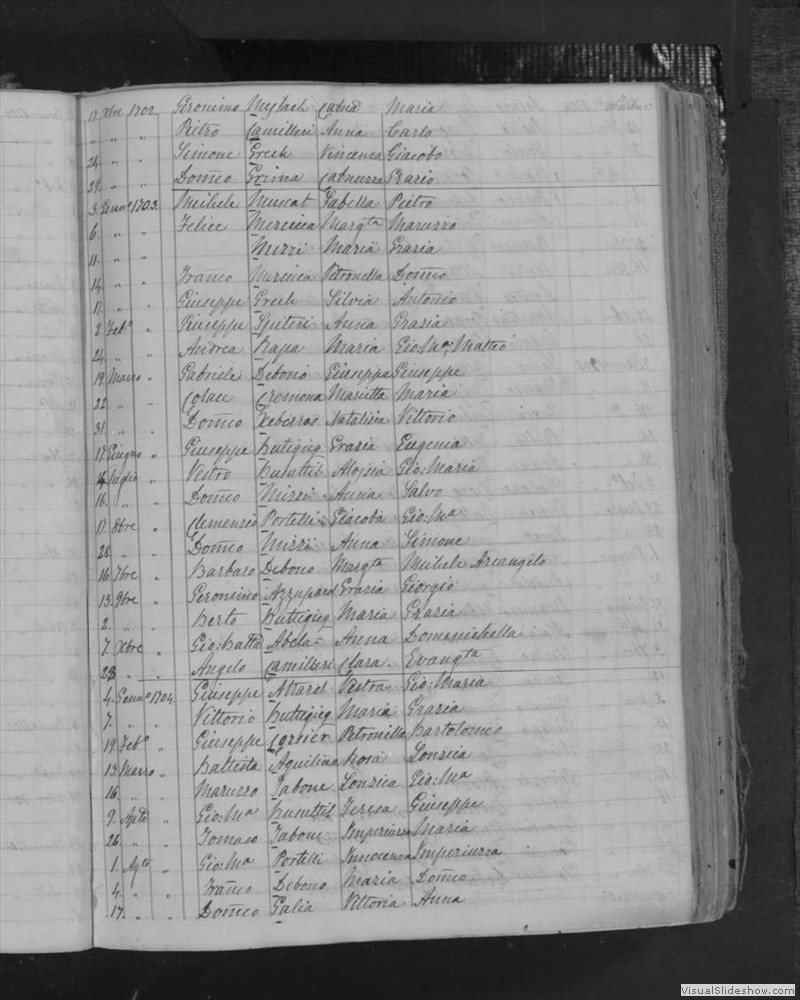 17. Xbre 1702. Geronimo Mylach Maria
" " " Pietro Camilleri Anna Carlo
24. " " Simone Grech Vincenza Giacobo
29. " " Dom̄co Grima Catnuzza Grazio
3. Genn.º 1703. Michele Muscat Isabella Pietro
6. " " Felice Mercieca Marg.ta Maruzzo
11. " " Mizzi Maria Grazia
14. " " Franco Mercieca Petronella Dom̄co
17. " " Giuseppe Grech Silvia Antonio
2. Feb.º " Giuseppe Spiteri Anna Grazia
24. " " Andrea Rapa Maria Gio: M.a, Matteo
19. Marzo " Gabriele Debono Giuseppa Giuseppe
22. " " Colace Cremona Marietta Maria
31. " " Dom̄co Xeberras Natalizia Vittorio
17. Giugno " Giuseppe Buttigieg Grazia Eugenia
14. Luglio " Vestro Busuttil Aloysia Gio: Maria
16. " " Dom̄co Mizzi Anna Salvo
17. 8bre " Clemenzio Portelli Giacoba Gio: M.a
28. " " Dom̄co Mizzi Anna Simone
16. 7bre " Barbaro Debono Marg.ta Michele Arcangelo
13. 9bre " Geronimo Azzupard Grazia Giorgio
2. " " Berto Buttigieg Maria Grazia
7. Xbre " Gio: Batta Abela Anna Domenichella
28. " " Angelo Camilleri Clara Evang.ta
4. Genn.º 1704. Giuseppe Attard Vestra Gio: Maria
7. " " Vittorio Buttigieg Maria Grazia
19. Feb.º " Giuseppe Petronilla Bartolomeo
13. Marzo " Battista Aquilina Rosa Lonzica
16. " " Maruzzo Tabone Lonzica Gio: M.a
9. " Gio: M.a Busuttil Teresa Giuseppe
26. " " Tomaso Tabone Imperiuzza Maria
1. Ag.to " Gio: M.a Portelli Innocenza Imperiuzza
4. " " Franco Debono Maria Dom̄co
17. " " Dom̄co Galia Vittoria Anna
VisualSlideshow.com